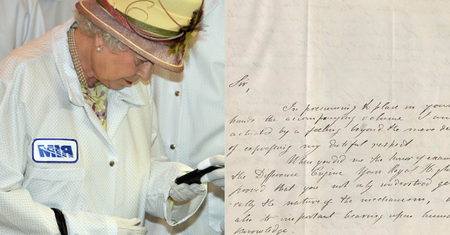 RIM
Sir,
In presuming to place in your
hands the accompanying volume I am
actuated by a feeling beyond the mere des
of expressing my dutiful respect
When you did me the honor of exam
the Difference Engine Your Royal High
proved that you not only understood ge
nerally the nature of the mechanism, b
also its important bearing upon human
Knowledge.